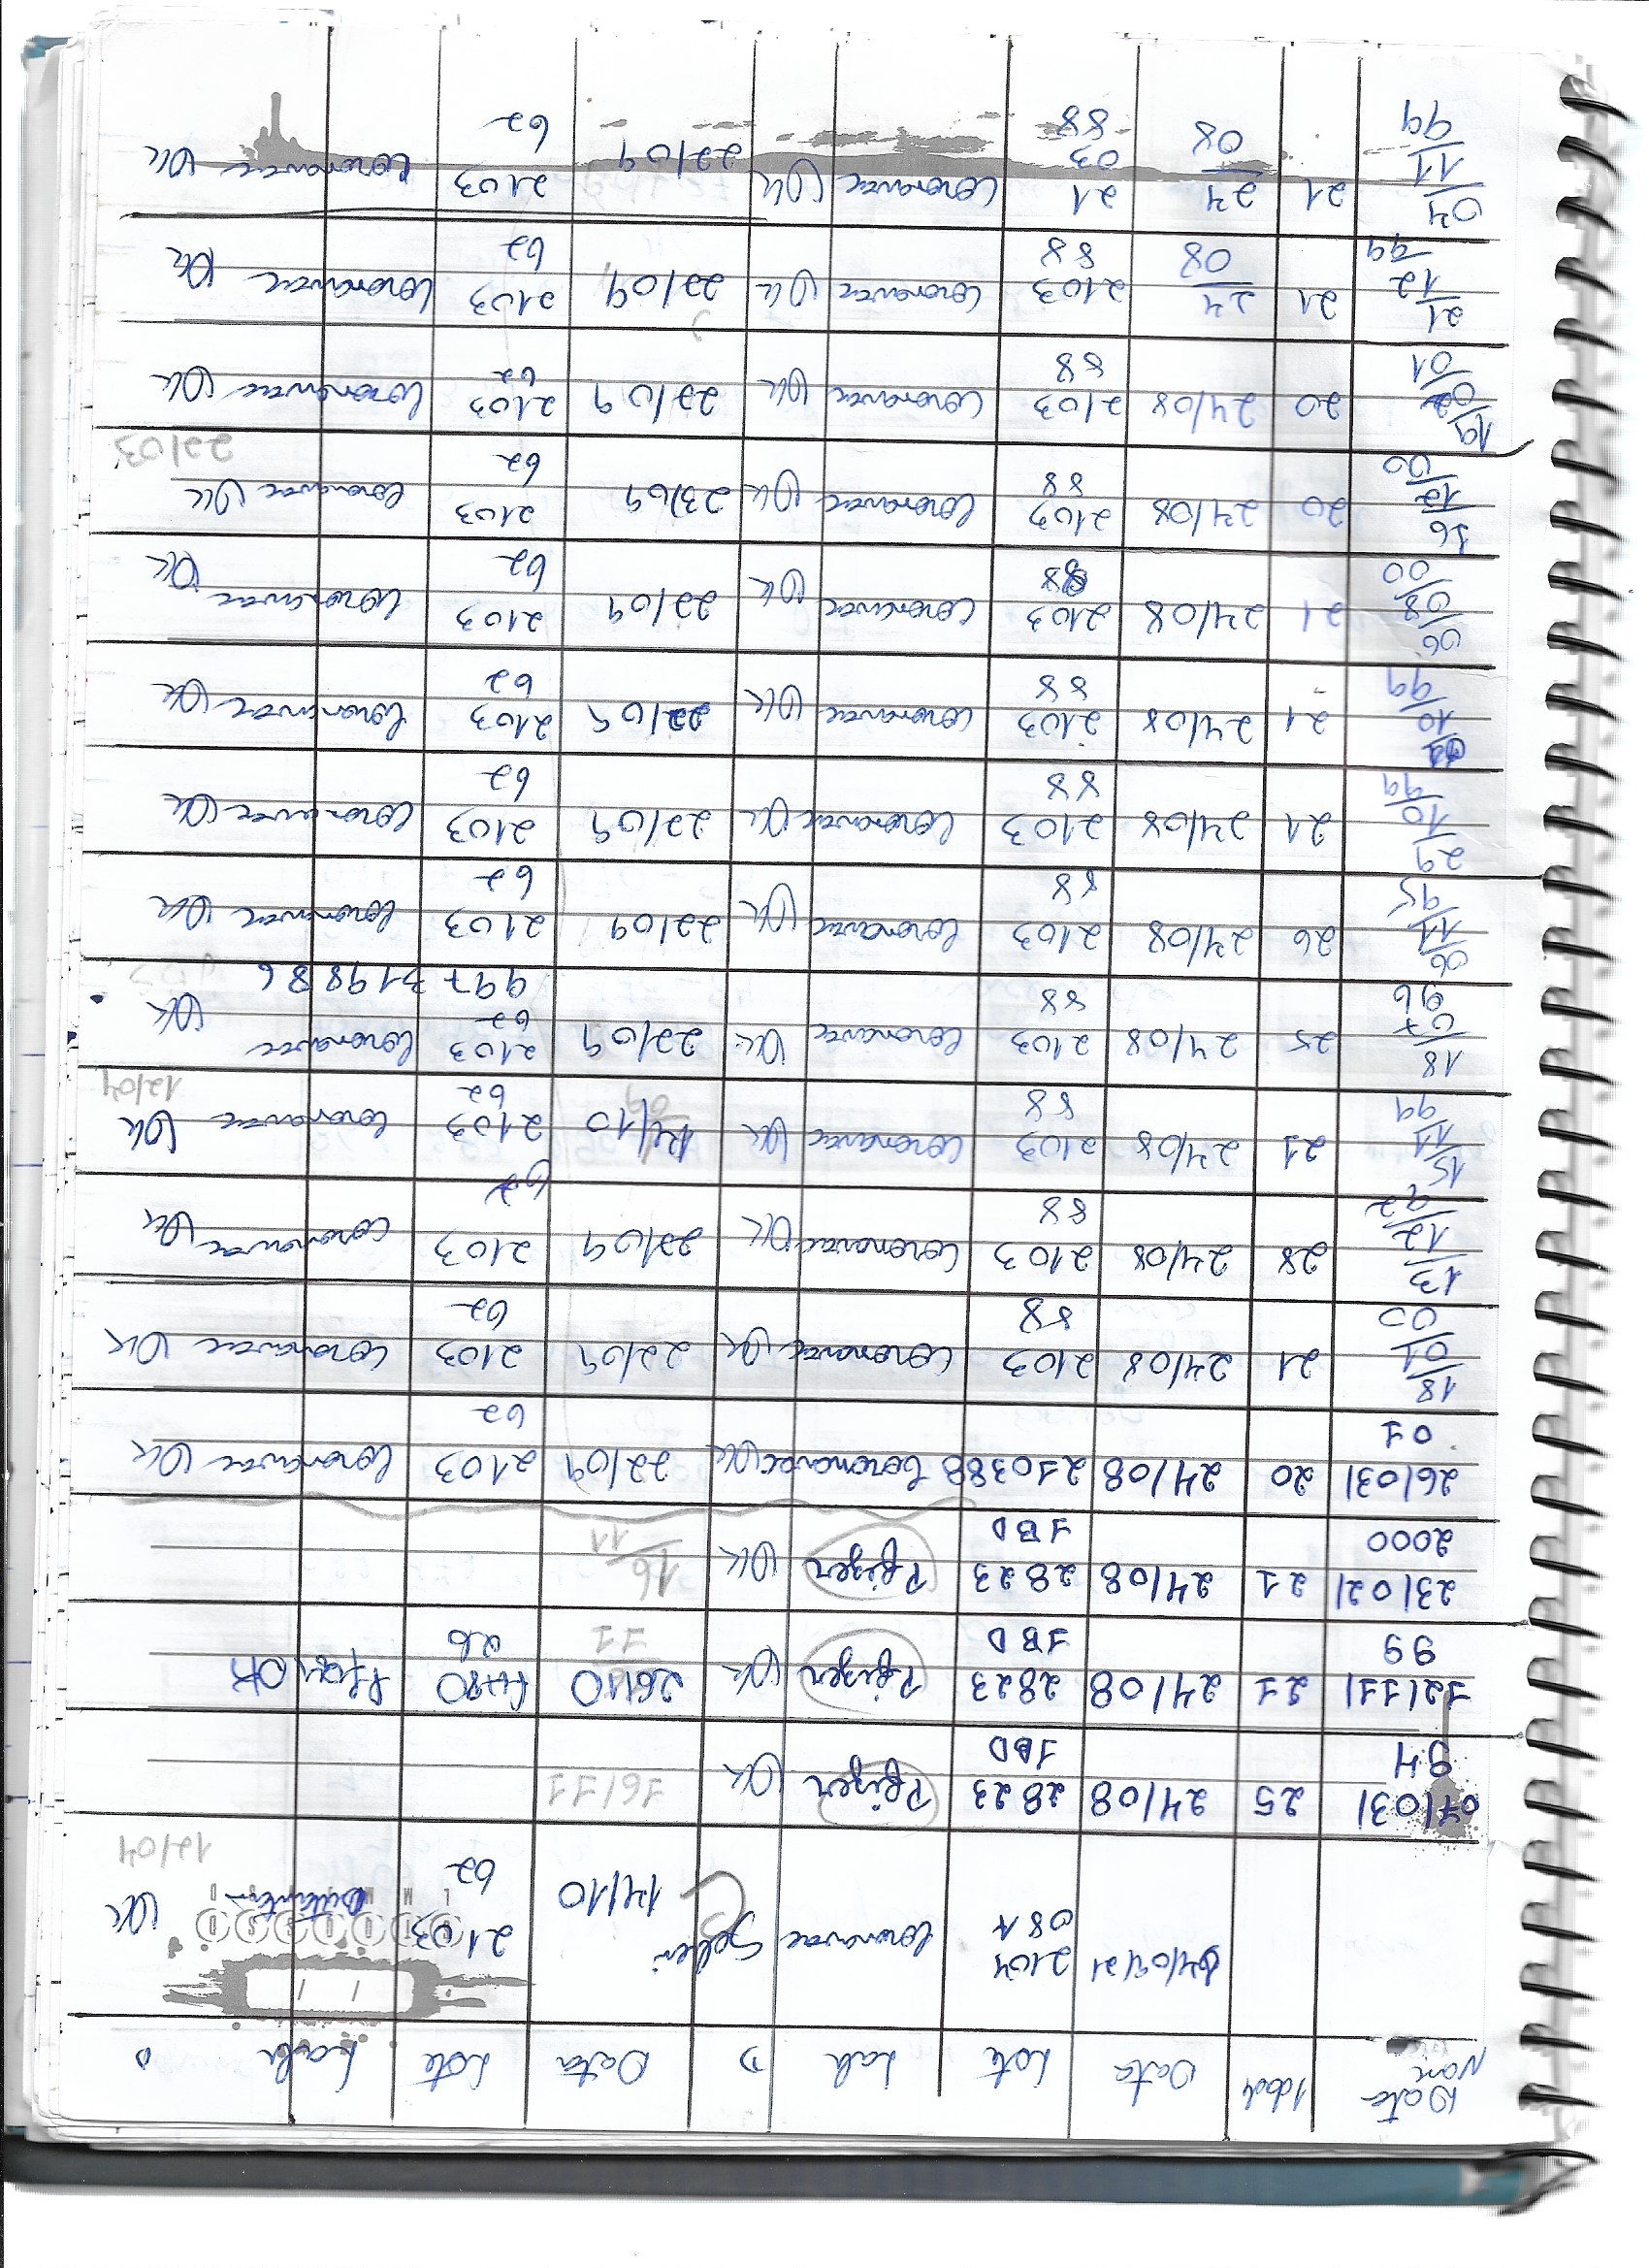 Data Nasc Idade Data Lote Lab D Data Lote Lab D
04/09/21 2104 08A Coronavac 14/10 2103 62 Butantan Ok 12/04
07/03/ 94 25 24/08 2823 1BD Pfizer Ok 16/11
12/11/ 99 21 24/08 2823 1BD Pfizer Ok 26/10 11 26 Pfizer OK
23/02/ 2000 21 24/08 2823 1BD Pfizer Ok 16/11
26/03/ 01 20 24/08 210388 Coronavac Ok 22/09 2103 62 Coronavac Ok
18/01/00 21 24/08 2103 88 Coronavac Ok 22/09 2103 62 Coronavac Ok
13/12/92 28 24/08 2103 88 Coronavac Ok 22/09 2103 62 Coronavac Ok
15/11/99 21 24/08 2103 88 Coronavac Ok 14/10 2103 62 Coronavac Ok 12/04
18/07/96 25 24/08 2103 88 Coronavac Ok 22/09 2103 62 Coronavac Ok
997319886
06/11/95 26 24/08 2103 88 Coronavac Ok 22/09 2103 62 Coronavac Ok
29/10/99 21 24/08 2103 88 Coronavac Ok 22/09 2103 62 Coronavac Ok
10/99 21 24/08 2103 88 Coronavac Ok 22/09 2103 62 Coronavac Ok
06/08/00 21 24/08 2103 88 Coronavac Ok 22/09 2103 62 Coronavac Ok
16/12/00 20 24/08 2103 88 Coronavac Ok 23/09 2103 62 Coronavac Ok 22/03
19/02/01 20 24/08 2103 88 Coronavac Ok 22/09 2103 62 Coronavac Ok
21/12/99 21 24/08 2103 88 Coronavac Ok 22/09 2103 62 Coronavac Ok
04/11/99 21 24/08 21 03 88 Coronavac Ok 22/09 2103 62 Coronavac Ok